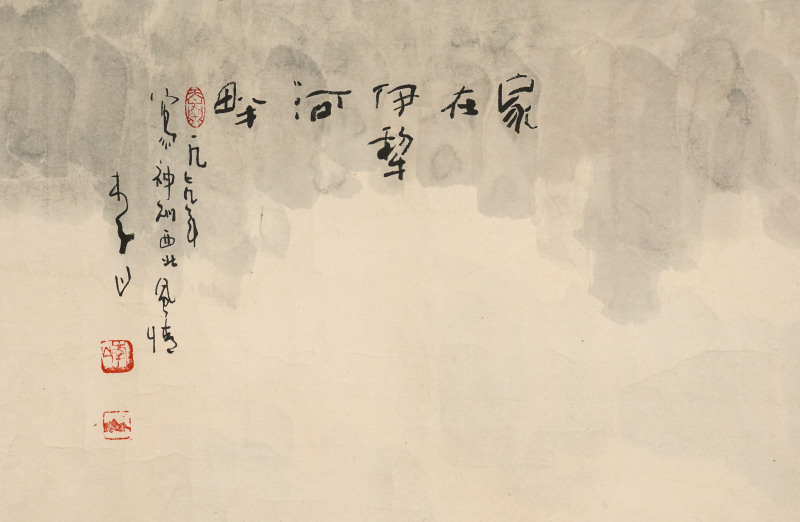 家在伊犁河畔
一九七九年
寫神州西北風情
李山
李山